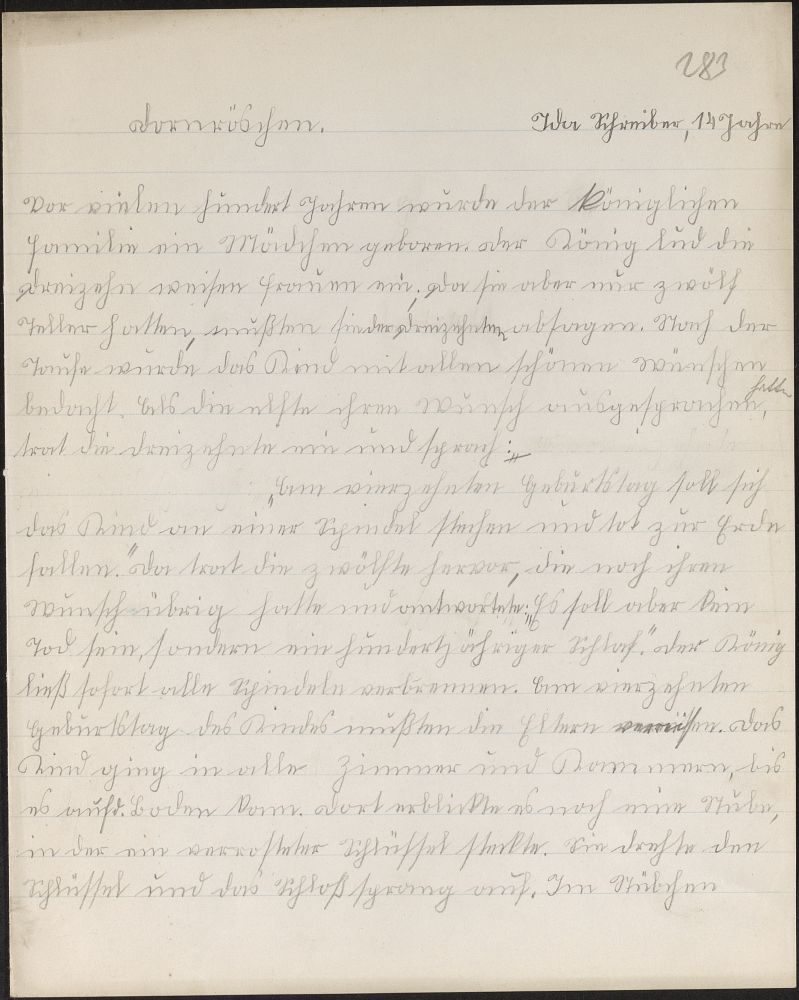 283
Dornröschen. Ida Schreiber, 14 Jahre
Vor vielen hundert Jahren wurde der königlichen
Familie ein Mädchen geboren. Der König lud die
dreizehn weisen Frauen ein; da sie aber nur zwölf
Teller hatten, mußten sie der dreizehnten absagen. Nach der
Taufe wurde das Kind mit allen schönen Wünschen
bedacht. Als die elfte ihren Wunsch ausgesprochen hatte,
trat die dreizehnte ein und sprach:
„Am vierzehnten Geburtstag soll sich
das Kind an einer Spindel stechen und tot zur Erde
fallen." Da trat die zwölfte hervor, die noch ihren
Wunsch übrig hatte und antwortete: „Es soll aber kein
Tod sein, sondern ein hundertjähriger Schlaf." Der König
ließ sofort alle Spindeln verbrennen. Am vierzehnten
Geburtstag des Kindes mußten die Eltern verreisen. Das
Kind ging in alle Zimmer und Kammern, bis
es auf d. Boden kam. Dort erblickte es noch eine Stube,
in der ein verrosteter Schlüssel steckte. Sie drehte den
Schlüssel und das Schloß sprang auf. Im Stübchen